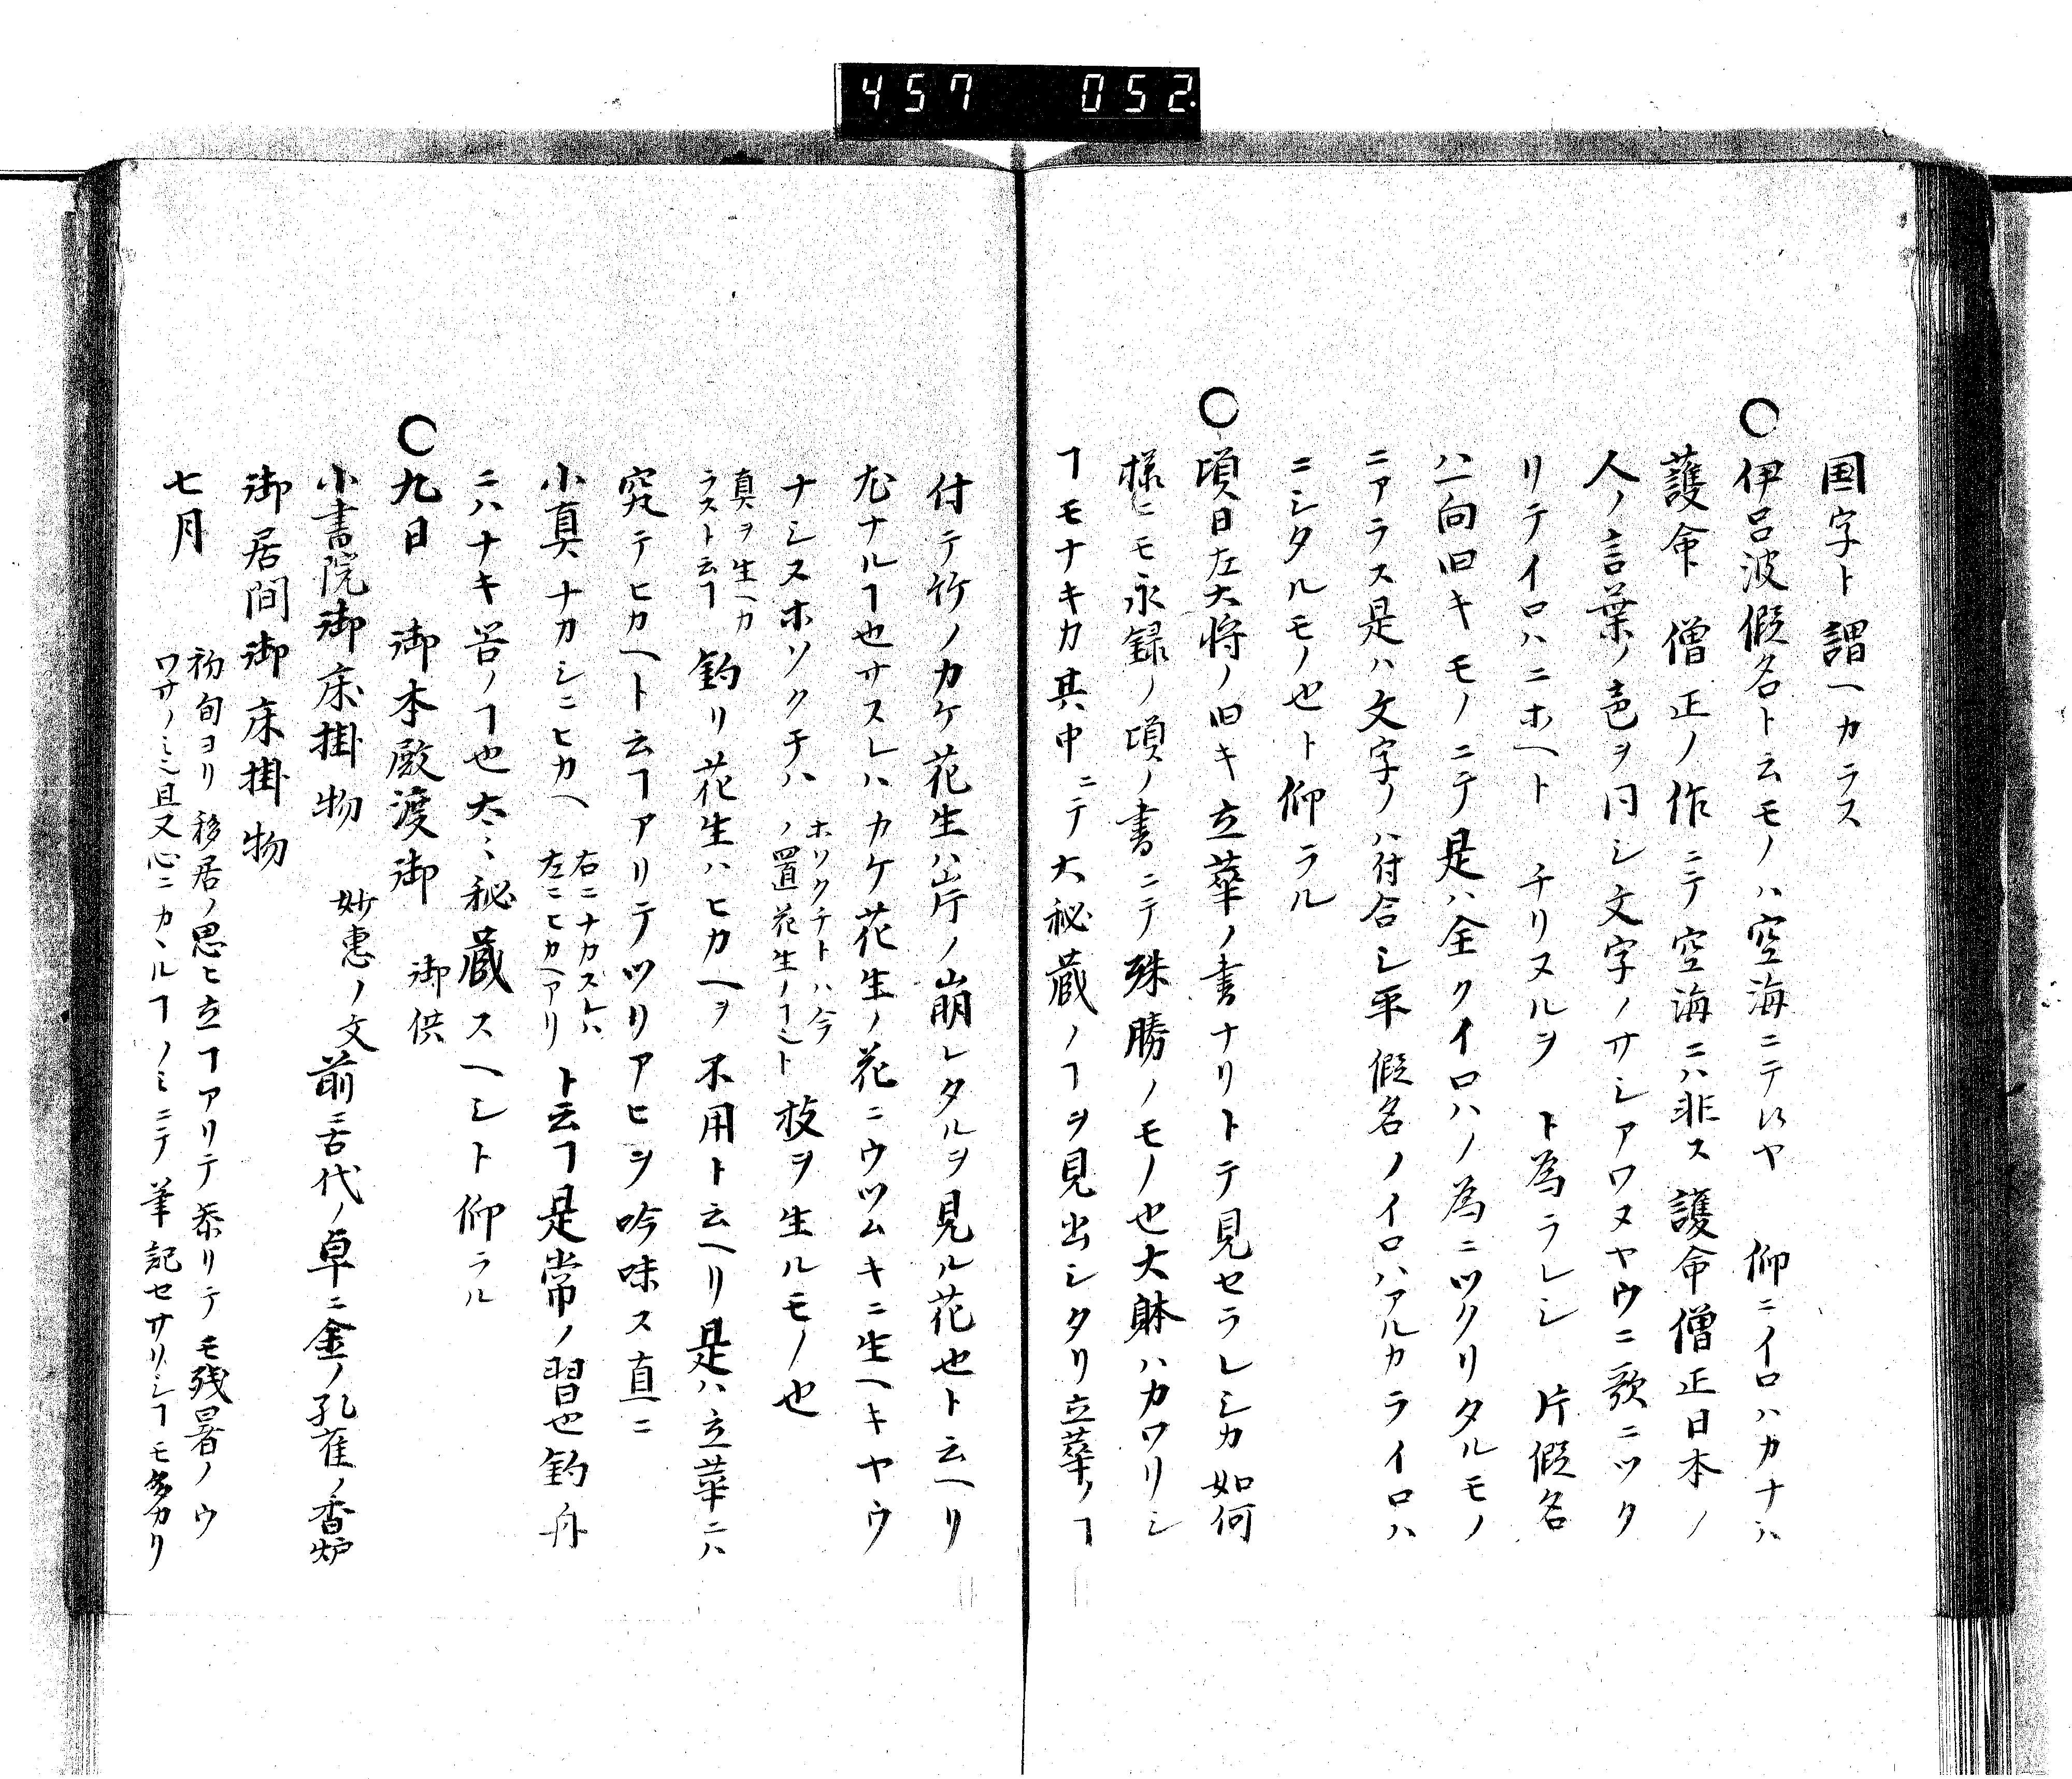 457 052
国字ト謂ヘカラス
○伊呂波假名ト云モノハ空海ニテ候ヤ 仰ニイロハカナハ
護命僧正ノ作ニテ空海ニハ非ス護命僧正日本ノ
人ノ言葉ノ音ヲ同シ文字ノサシアワヌヤウニ歌ニツク
リテイロハニホヘト チリヌルヲ ト為ラレシ 片假名
ハ一向旧キモノニテ是ハ全クイロハノ為ニツクリタルモノ
ニアラス是ハ文字ノハ付合シ平假名ノイロハアルカライロハ
ニシタルモノ也ト仰ラル
○頃日左大将ノ旧キ立華ノ書ナリトテ見セラレシカ如何
様ニモ永録ノ頃ノ書ニテ殊勝ノモノ也大躰ハカワリシ
ヿモナキカ其中ニテ大秘蔵ノヿヲ見出シタリ立華ノヿ
付テ竹ノカケ花生ハ岸ノ崩レタルヲ見ル花也ト云ヘリ
尤ナルヿ也サスレハカケ花生ノ花ニウツムキニ生ヘキヤウ
ナシスホソクチハ ホソクチトハ今
ノ置花生ノヿ也ト 枝ヲ生ルモノ也
真ヲ生ヘカ
ラスト云ヿ 釣リ花生ハヒカヘヲ不用ト云ヘリ是ハ立華ニハ
究テヒカヘト云ヿアリテツリアヒヲ吟味ス直ニ
小真ナカシニヒカヘ 右ニナカスレハ
左ニヒカヘアリ ト云ヿ是常ノ習也釣舟
ニハナキ筈ノヿ也大ニ秘蔵スヘシト仰ラル
○九日 御本殿渡御 御供
小書院御床掛物 妙恵ノ文前三舌代ノ卓ニ金ノ孔雀ノ香炉
御居間御床掛物
七月 初旬ヨリ移居ノ思ヒ立ヿアリテ参リテモ残暑ノウ
ワサノミ且又心ニカヽルヿノミニテ筆記セサリシヿモ多カリ